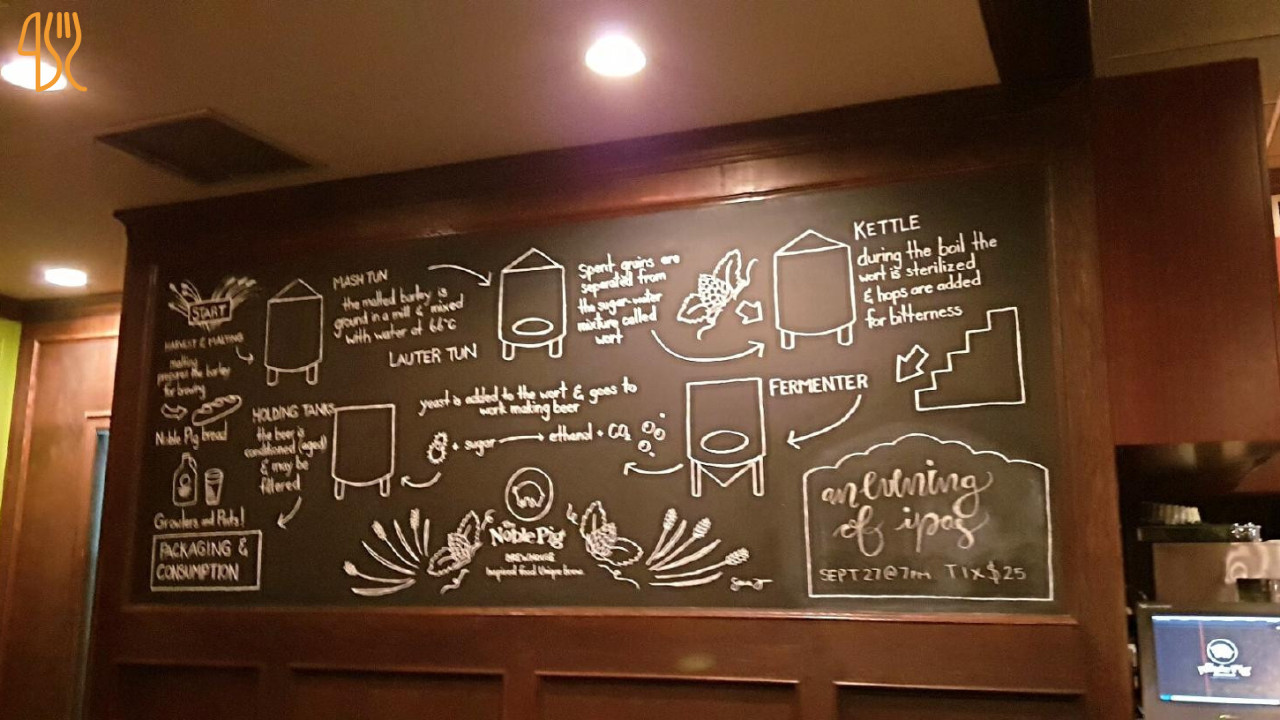 START
HARVEST & MALTING
malting
prepares the barley
for brewing
Noble Pig bread
MASH TUN
the malted barley is
ground in a mill & mixed
with water at 66°C
LAUTER TUN
Spent grains are
separated from
the sugar-water
mixture called
wort
KETTLE
during the boil the
wort is sterilized
& hops are added
for bitterness
FERMENTER
yeast is added to the wort & goes to
work making beer
+ sugar → ethanol + CO2
HOLDING TANKS
the beer is
conditioned (aged)
& may be
filtered
Growlers and Pints!
PACKAGING &
CONSUMPTION
The
Noble Pig
BREWHOUSE
Inspired food Unique brews
an evening
of ipas
SEPT 27 @ 7PM TIX $25
Noble Pig